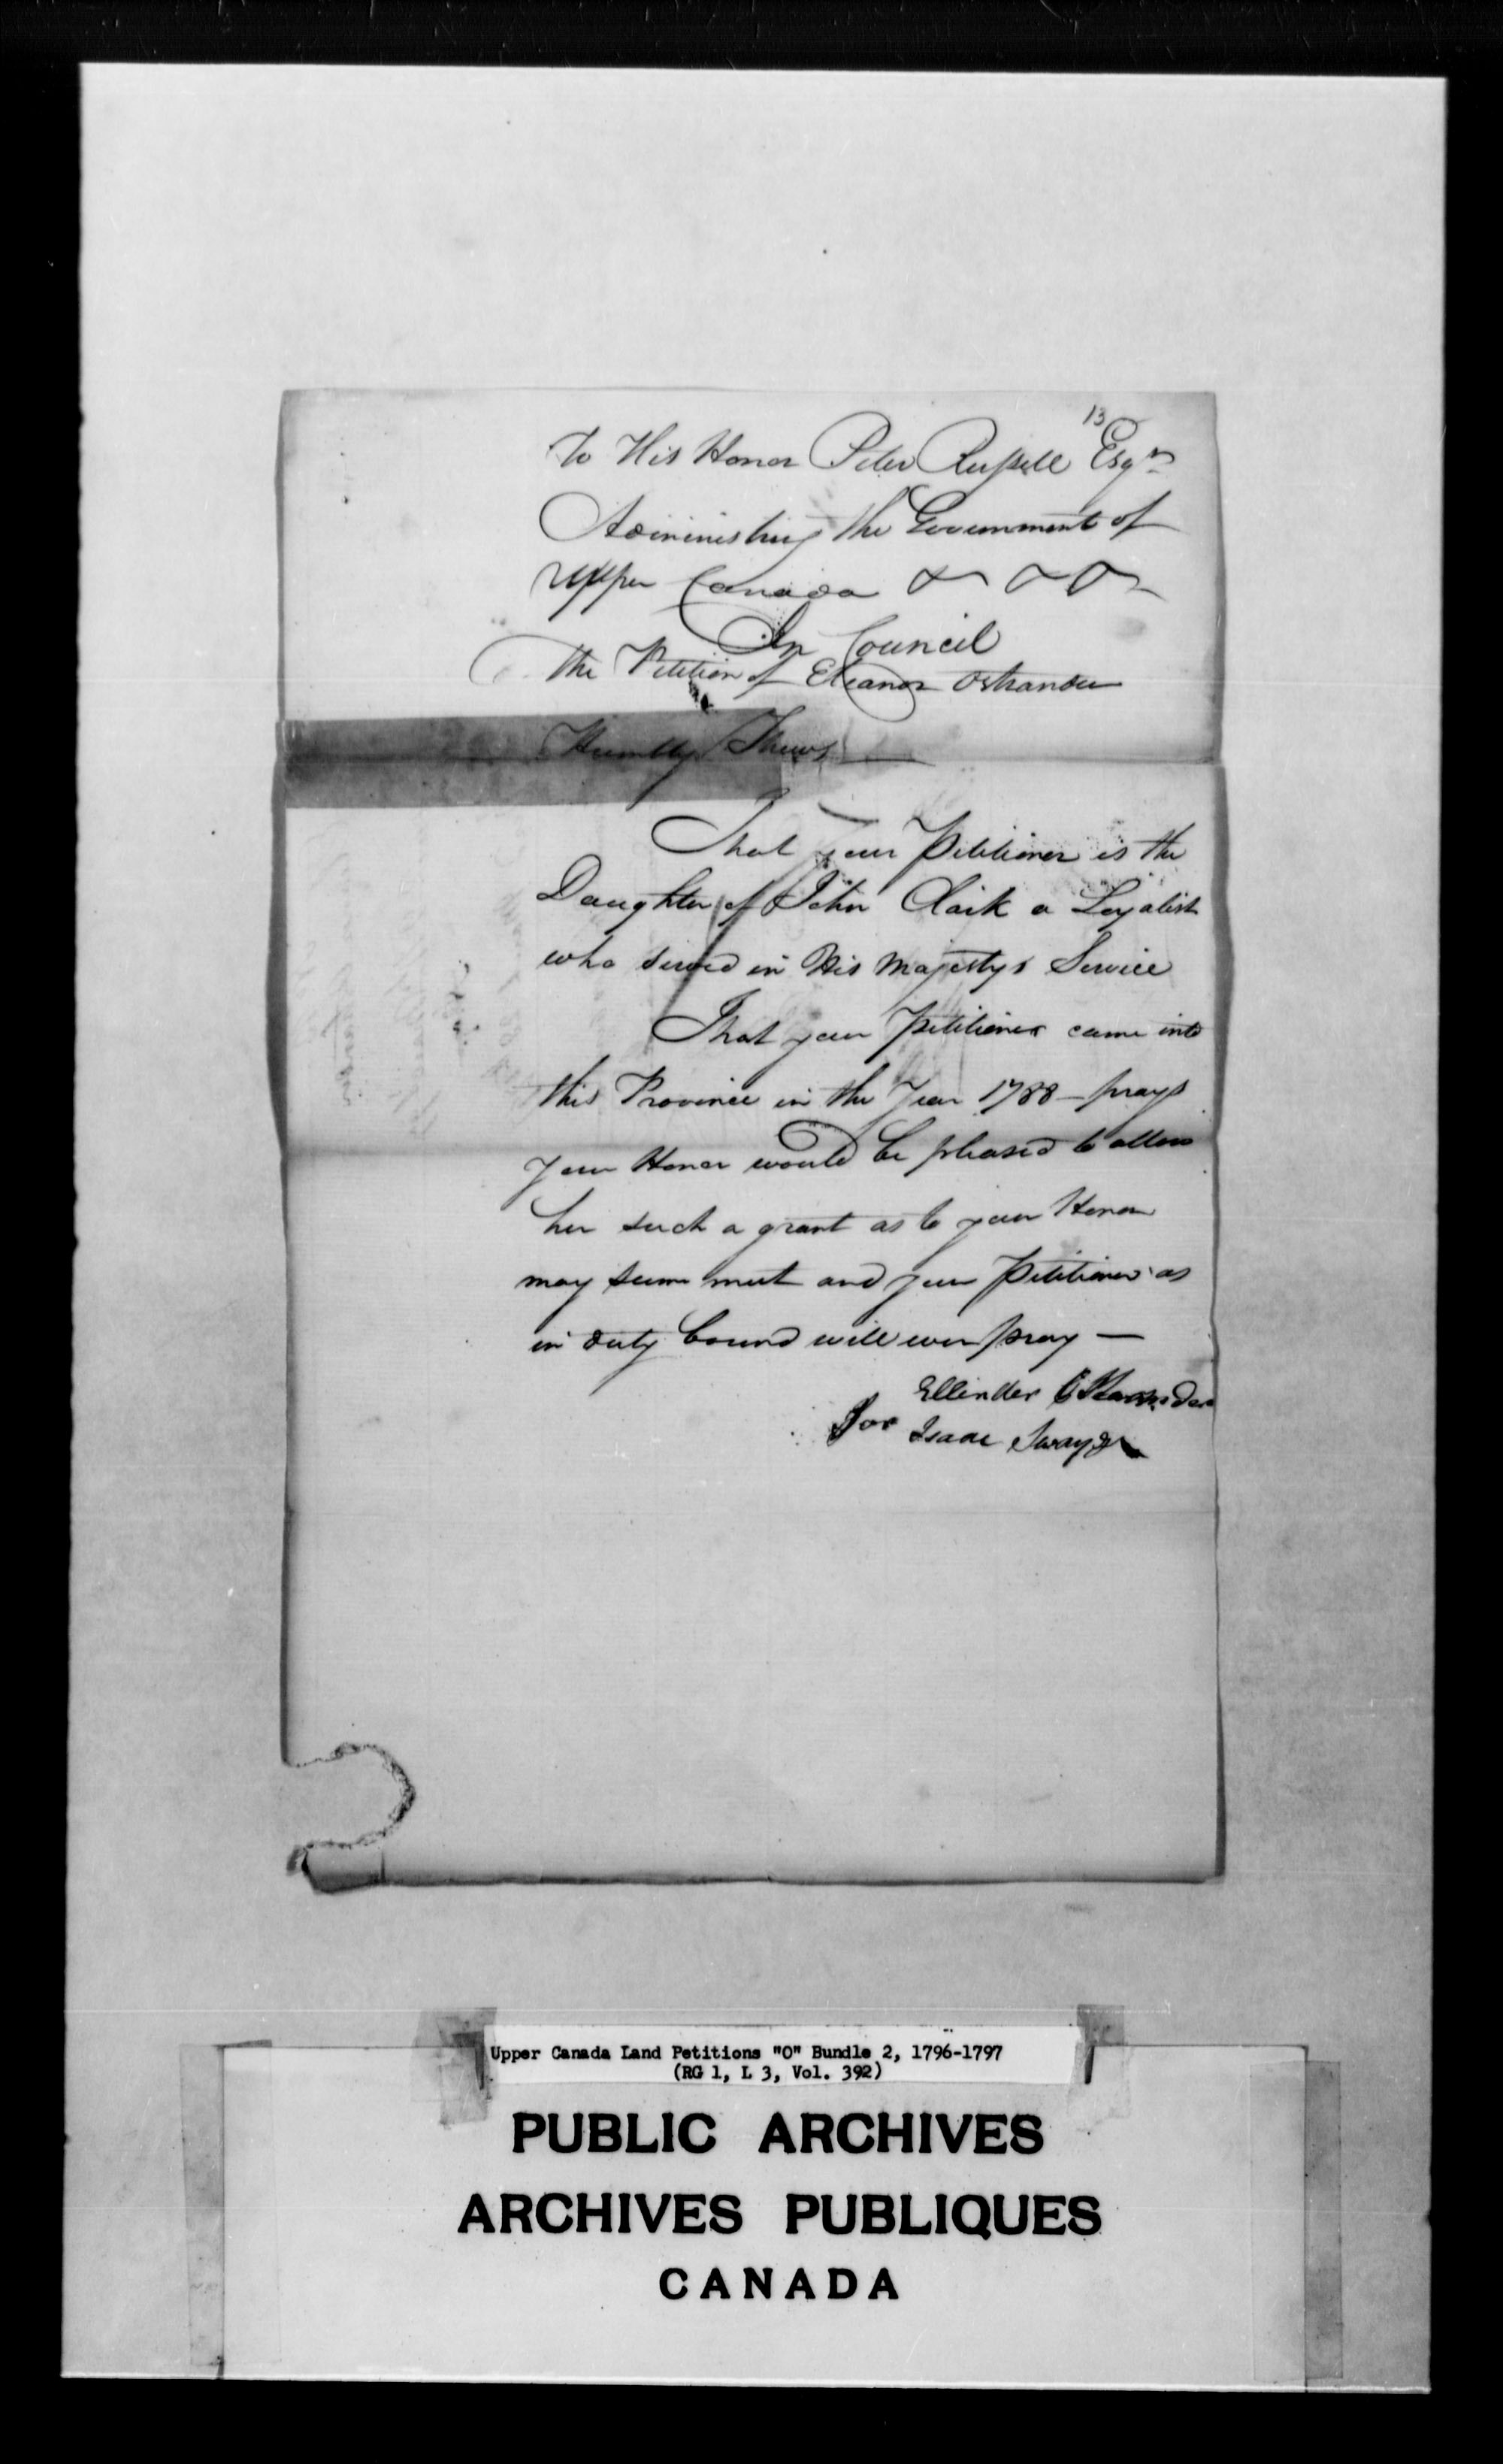 13
To His Honor Peter Russell Esqr
Administring the Government of
Upper Canada &c &c &c
In Council
The Petition of Eleanor Ostrander
Humbly Shews
That your Petitioner is the
Daughter of John Clark a Loyalist
who served in His Majestys Service
That your Petitioner came into
this Province in the Year 1788 — prays
your Honor would be pleased to allow
her such a grant as to your Honor
may seem meet and your Petitioner as
in duty bound will ever pray —
Ellender Ostrander
for Isaac Swayze
Upper Canada Land Petitions "O" Bundle 2, 1796-1797
(RG 1, L 3, Vol. 392)
PUBLIC ARCHIVES
ARCHIVES PUBLIQUES
CANADA